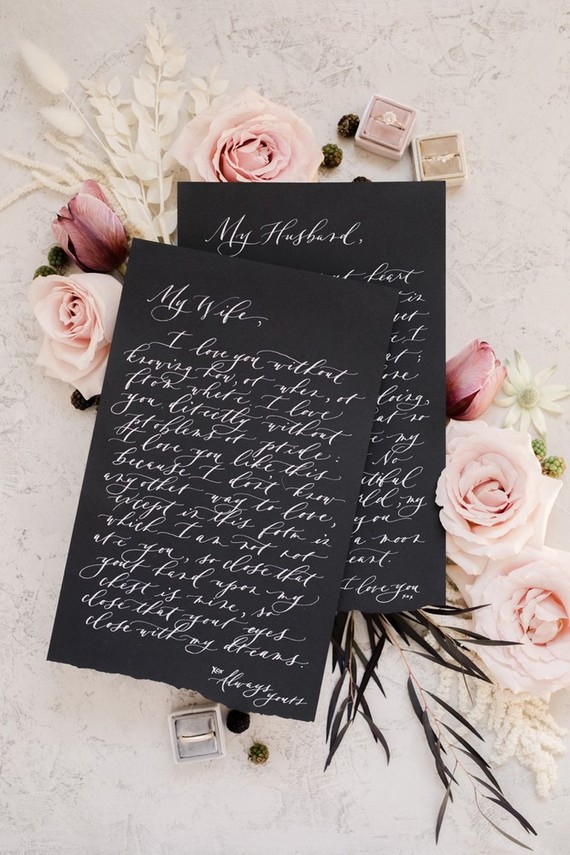 My Husband,
heart
in
I
doing,
no
my
No
my
you
a moon
love you
My Wife,
I love you without
knowing how, or when, or
from where I love
you directly without
problems or pride:
I love you like this
because I don't know
any other way to love,
except in this form in
which I am not nor
are you, so close that
your hand upon my
chest is mine, so
close that your eyes
close with my dreams.
xox
Always
yours